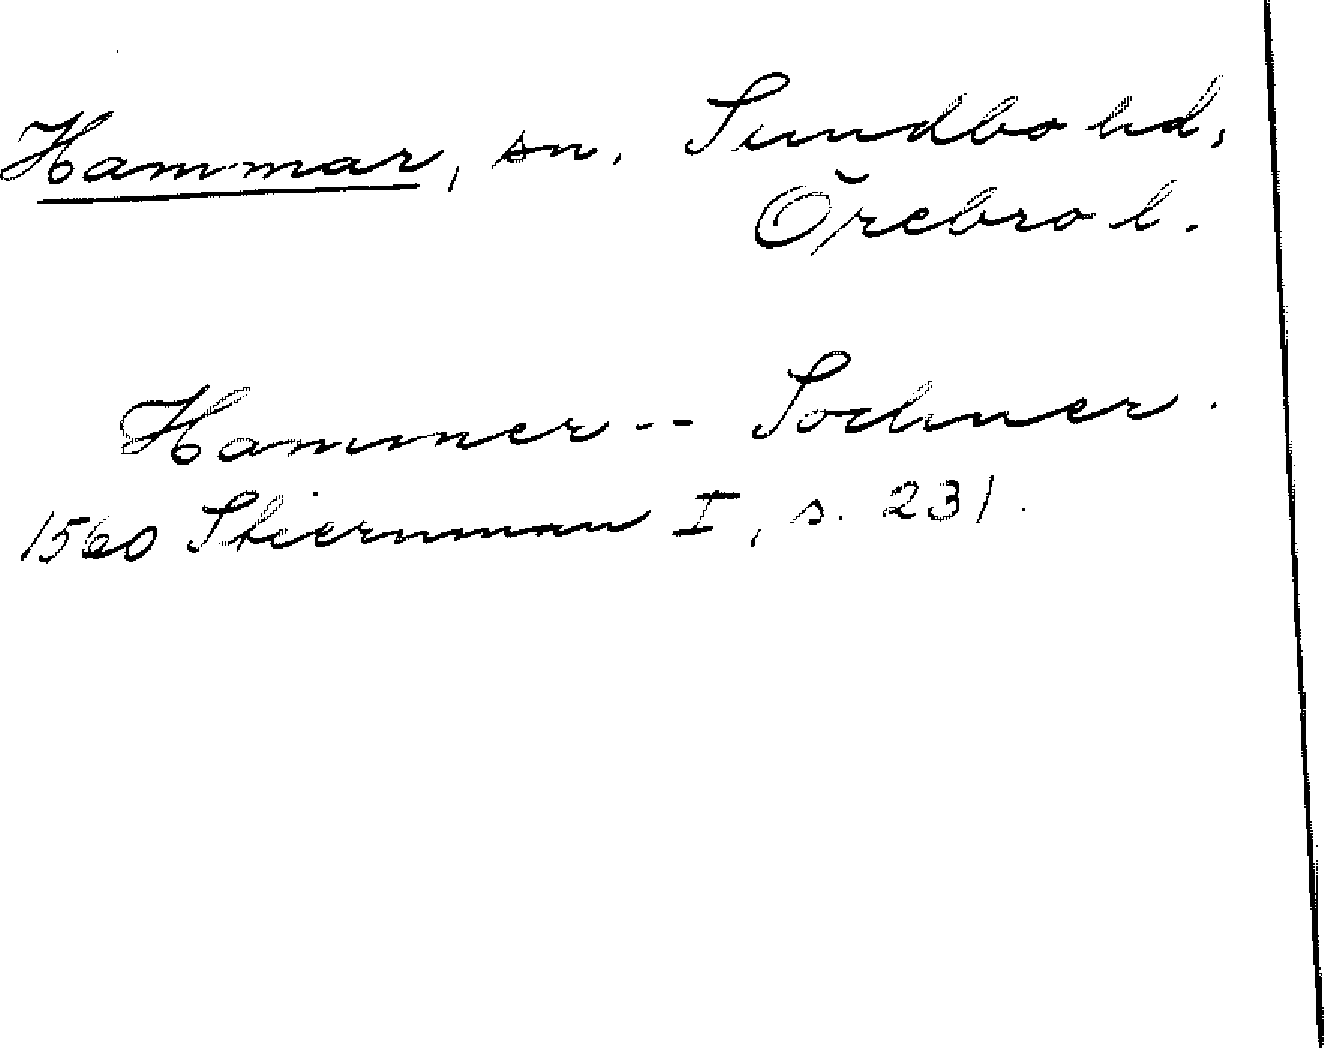 Hammar, sn. Sundbo hd,
Örebro l.
Hammer -- Sochner.
1560 Stiernman I, s. 231.